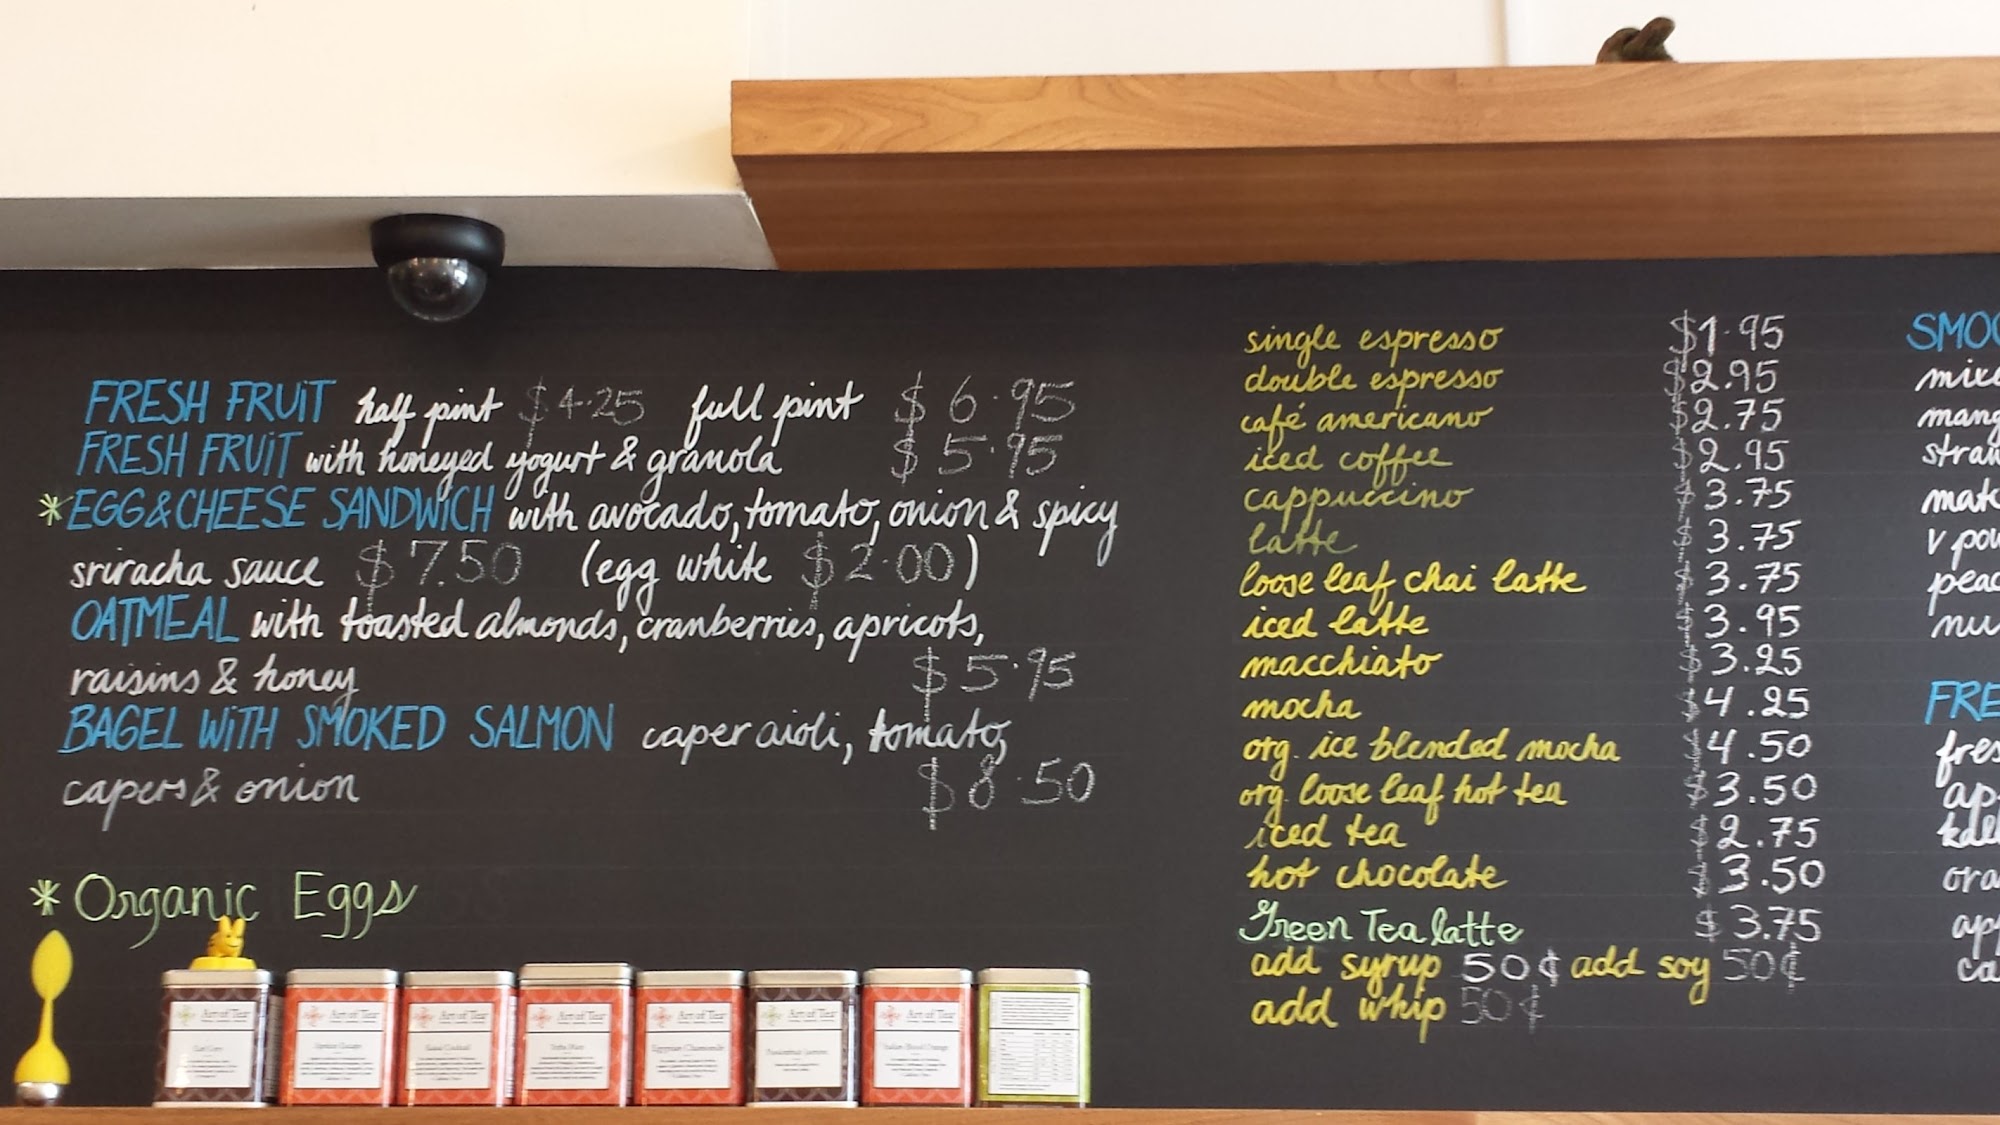 FRESH FRUIT half pint $4.25 full pint $6.95
FRESH FRUIT with honeyed yogurt & granola $5.95
*EGG & CHEESE SANDWICH with avocado, tomato, onion & spicy
sriracha sauce $7.50 (egg white $2.00)
OATMEAL with toasted almonds, cranberries, apricots,
raisins & honey $5.95
BAGEL WITH SMOKED SALMON caper aioli, tomato,
capers & onion $8.50
*Organic Eggs
single espresso $1.95
double espresso $2.95
café americano $2.75
iced coffee $2.95
cappuccino $3.75
latte $3.75
loose leaf chai latte $3.75
iced latte $3.95
macchiato $3.25
mocha $4.25
org. ice blended mocha $4.50
org. loose leaf hot tea $3.50
iced tea $2.75
hot chocolate $3.50
Green Tea latte $3.75
add syrup 50¢ add soy 50¢
add whip 50¢
SMOO
mixe
mang
straw
v pow
peac
nu
FRE
fres
ap
ora
app
ca
Art of Tea
Art of Tea
Art of Tea
Art of Tea
Egyptian Chamomile
Art of Tea
Art of Tea
Passionfruit Jasmine
Art of Tea
Italian Blood Orange